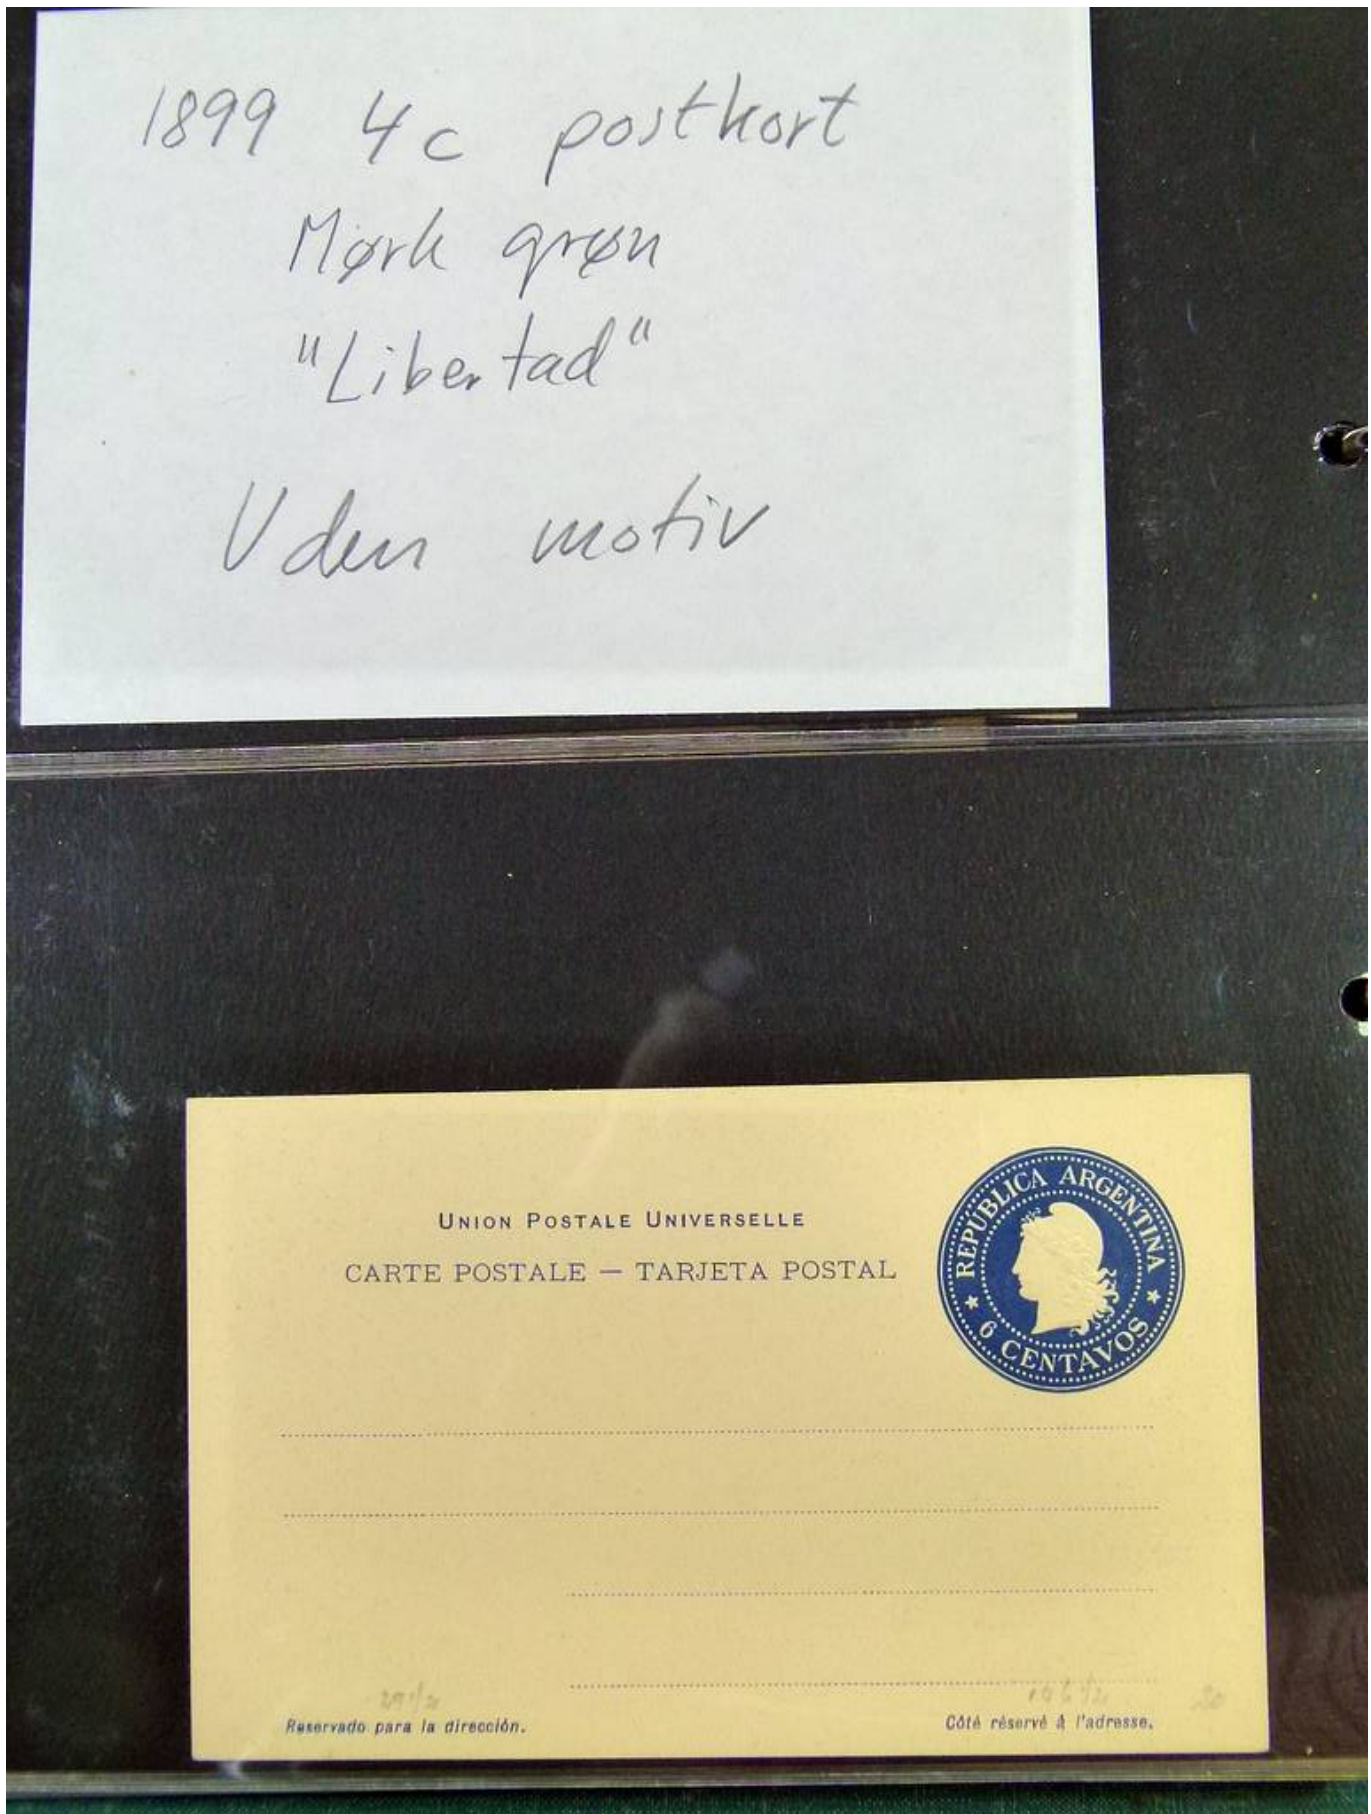 1899 4c postkort
Mørk grøn
"Libertad"
Uden motiv
UNION POSTALE UNIVERSELLE
CARTE POSTALE — TARJETA POSTAL
REPÚBLICA ARGENTINA
★ 6 CENTAVOS ★
Reservado para la dirección.
Côté réservé à l'adresse.